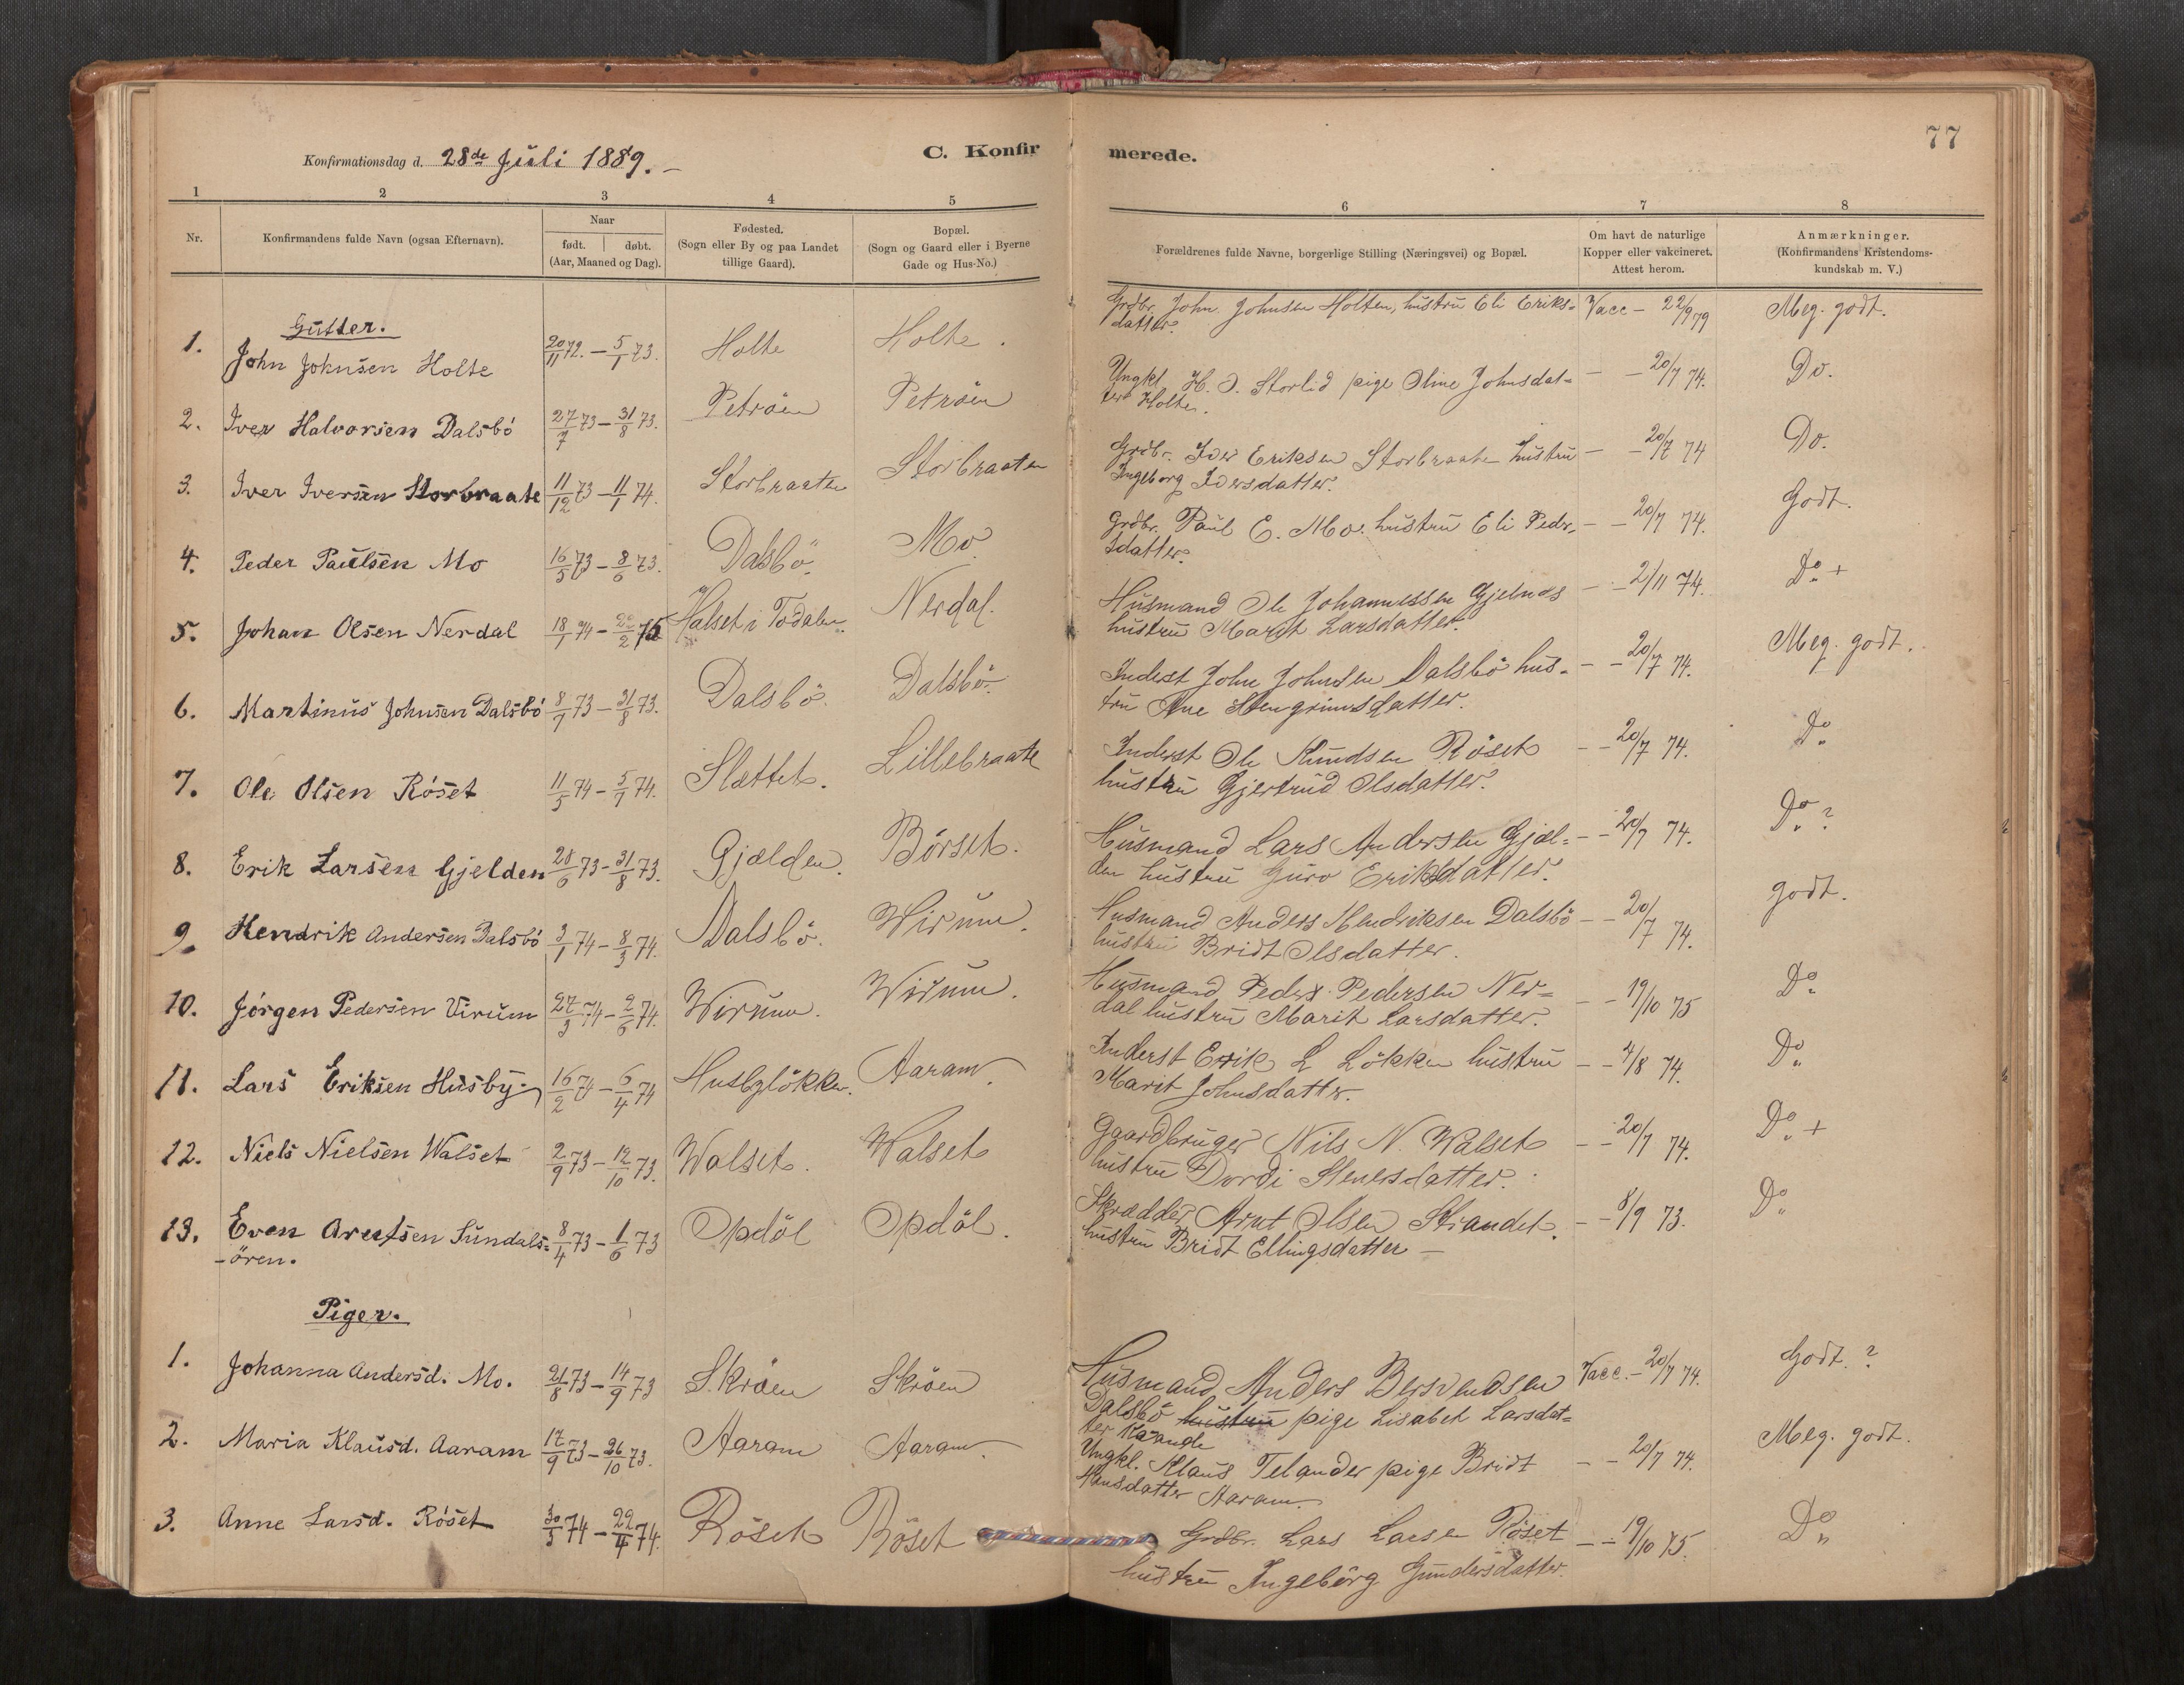 77
Konfirmationsdag d. 28de Juli 1889. –
C. Konfir merede.
1 2 3 4 5 6 7 8
Nr.
Konfirmandens fulde Navn (ogsaa Efternavn).
Naar
født. døbt.
(Aar, Maaned og Dag).
Fødested.
(Sogn eller By og paa Landet
tillige Gaard).
Bopæl.
(Sogn og Gaard eller i Byerne
Gade og Hus-No.)
Forældrenes fulde Navne, borgerlige Stilling (Næringsvei) og Bopæl.
Om havt de naturlige
Kopper eller vakcineret.
Attest herom.
Anmærkninger.
(Konfirmandens Kristendoms-
kundskab m. V.)
Gutter.
1. John Johnsen Holte 20/11 72. – 5/1 73. Holte Holte. Grdbr. John Johnsen Holten, hustru Eli Eriks= Vacc – 22/9 79 Meg. godt.
datter.
2. Iver Halvorsen Dalsbö 27/7 73 – 31/8 73. Petröen Petröen Ungkl. H. O. Storlid pige Oline Johnsdat= – – 20/7 74. Do.
ter Holte.
3. Iver Iversen Storbraate 11/12 73 – 11/1 74. Storbraaten Storbraaten Grdbr. Iver Eriksen Storbraate hustru – – 20/7 74 Do.
Ingeborg Iversdatter.
4. Peder Paulsen Mo 16/5 73 – 8/6 73. Dalsbö. Mo Grdbr. Paul E. Mo. hustru Eli Peder= – – 20/7 74. Godt.
sdatter.
5. Johan Olsen Nerdal 18/1 74 – 22/2 75 Halset i Todalen. Nerdal. Husmand Ole Johannessen Gjelnes – – 2/11 74. Do +
hustru Marit Larsdatter.
6. Martinus Johnsen Dalsbö 8/7 73 – 31/8 73. Dalsbö. Dalsbö. Inderst John Johnsen Dalsbö hus= – – 20/7 74. Meg. godt.
tru Ane Stengrimsdatter.
7. Ole Olsen Röset 11/5 74 – 5/7 74. Slættet. Lillebraate Inderst Ole Knudsen Röset – – 20/7 74. Do
hustru Gjertrud Olsdatter.
8. Erik Larsen Gjelden 28/6 73 – 31/8 73. Gjælden. Börset. Husmand Lars Andersen Gjæl= – – 20/7 74. Do ?
den hustru Guro Eriksdatter.
9. Hendrik Andersen Dalsbö 3/1 74 – 8/3 74. Dalsbö. Wirum. Husmand Anders Hendriksen Dalsbö – – 20/7 74. godt.
hustru Bridt Olsdatter.
10. Jörgen Pedersen Virum 27/3 74 – 2/6 74. Wirum. Wirum. Husmand Peder Pedersen Ner= – – 19/10 75 Do
dal hustru Marit Larsdatter.
11. Lars Eriksen Husby 16/2 74 – 6/4 74 Husbylökken. Aaram. Inderst Erik L Lökken hustru – – 4/8 74. Do
Marit Johnsdatter.
12. Niels Nielsen Walset 2/9 73 – 12/10 73. Walset. Walset Gaardbruger Nils N. Walset – – 20/7 74. Do +
hustru Dordi Stenersdatter.
13. Even Arntsen Sundals= 8/4 73 – 1/6 73 Opdöl Opdöl. Skrædder Arnt Olsen Strandet. – – 8/9 73. Do
-ören. hustru Bridt Ellingsdatter –
Piger.
1. Johanna Andersd. Mo. 21/8 73 – 14/9 73 Skröen Skröen Husmand Anders Bersvendsen Vacc. – 20/7 74. Godt. ?
Dalsbö hustru pige Lisabet Larsdat=
ter
2. Maria Klausd. Aaram 17/9 73 – 26/10 73. Aaram Aaram. Ungkl. Klaus Telander pige Bridt – – 20/7 74. Meg. godt.
Hansdatter Aaram.
3. Anne Larsd. Röset 30/3 74 – 22/4 74. Röset Röset Grdbr. Lars Larsen Röset – – 19/10 75. Do
hustru Ingebörg Gundersdatter.